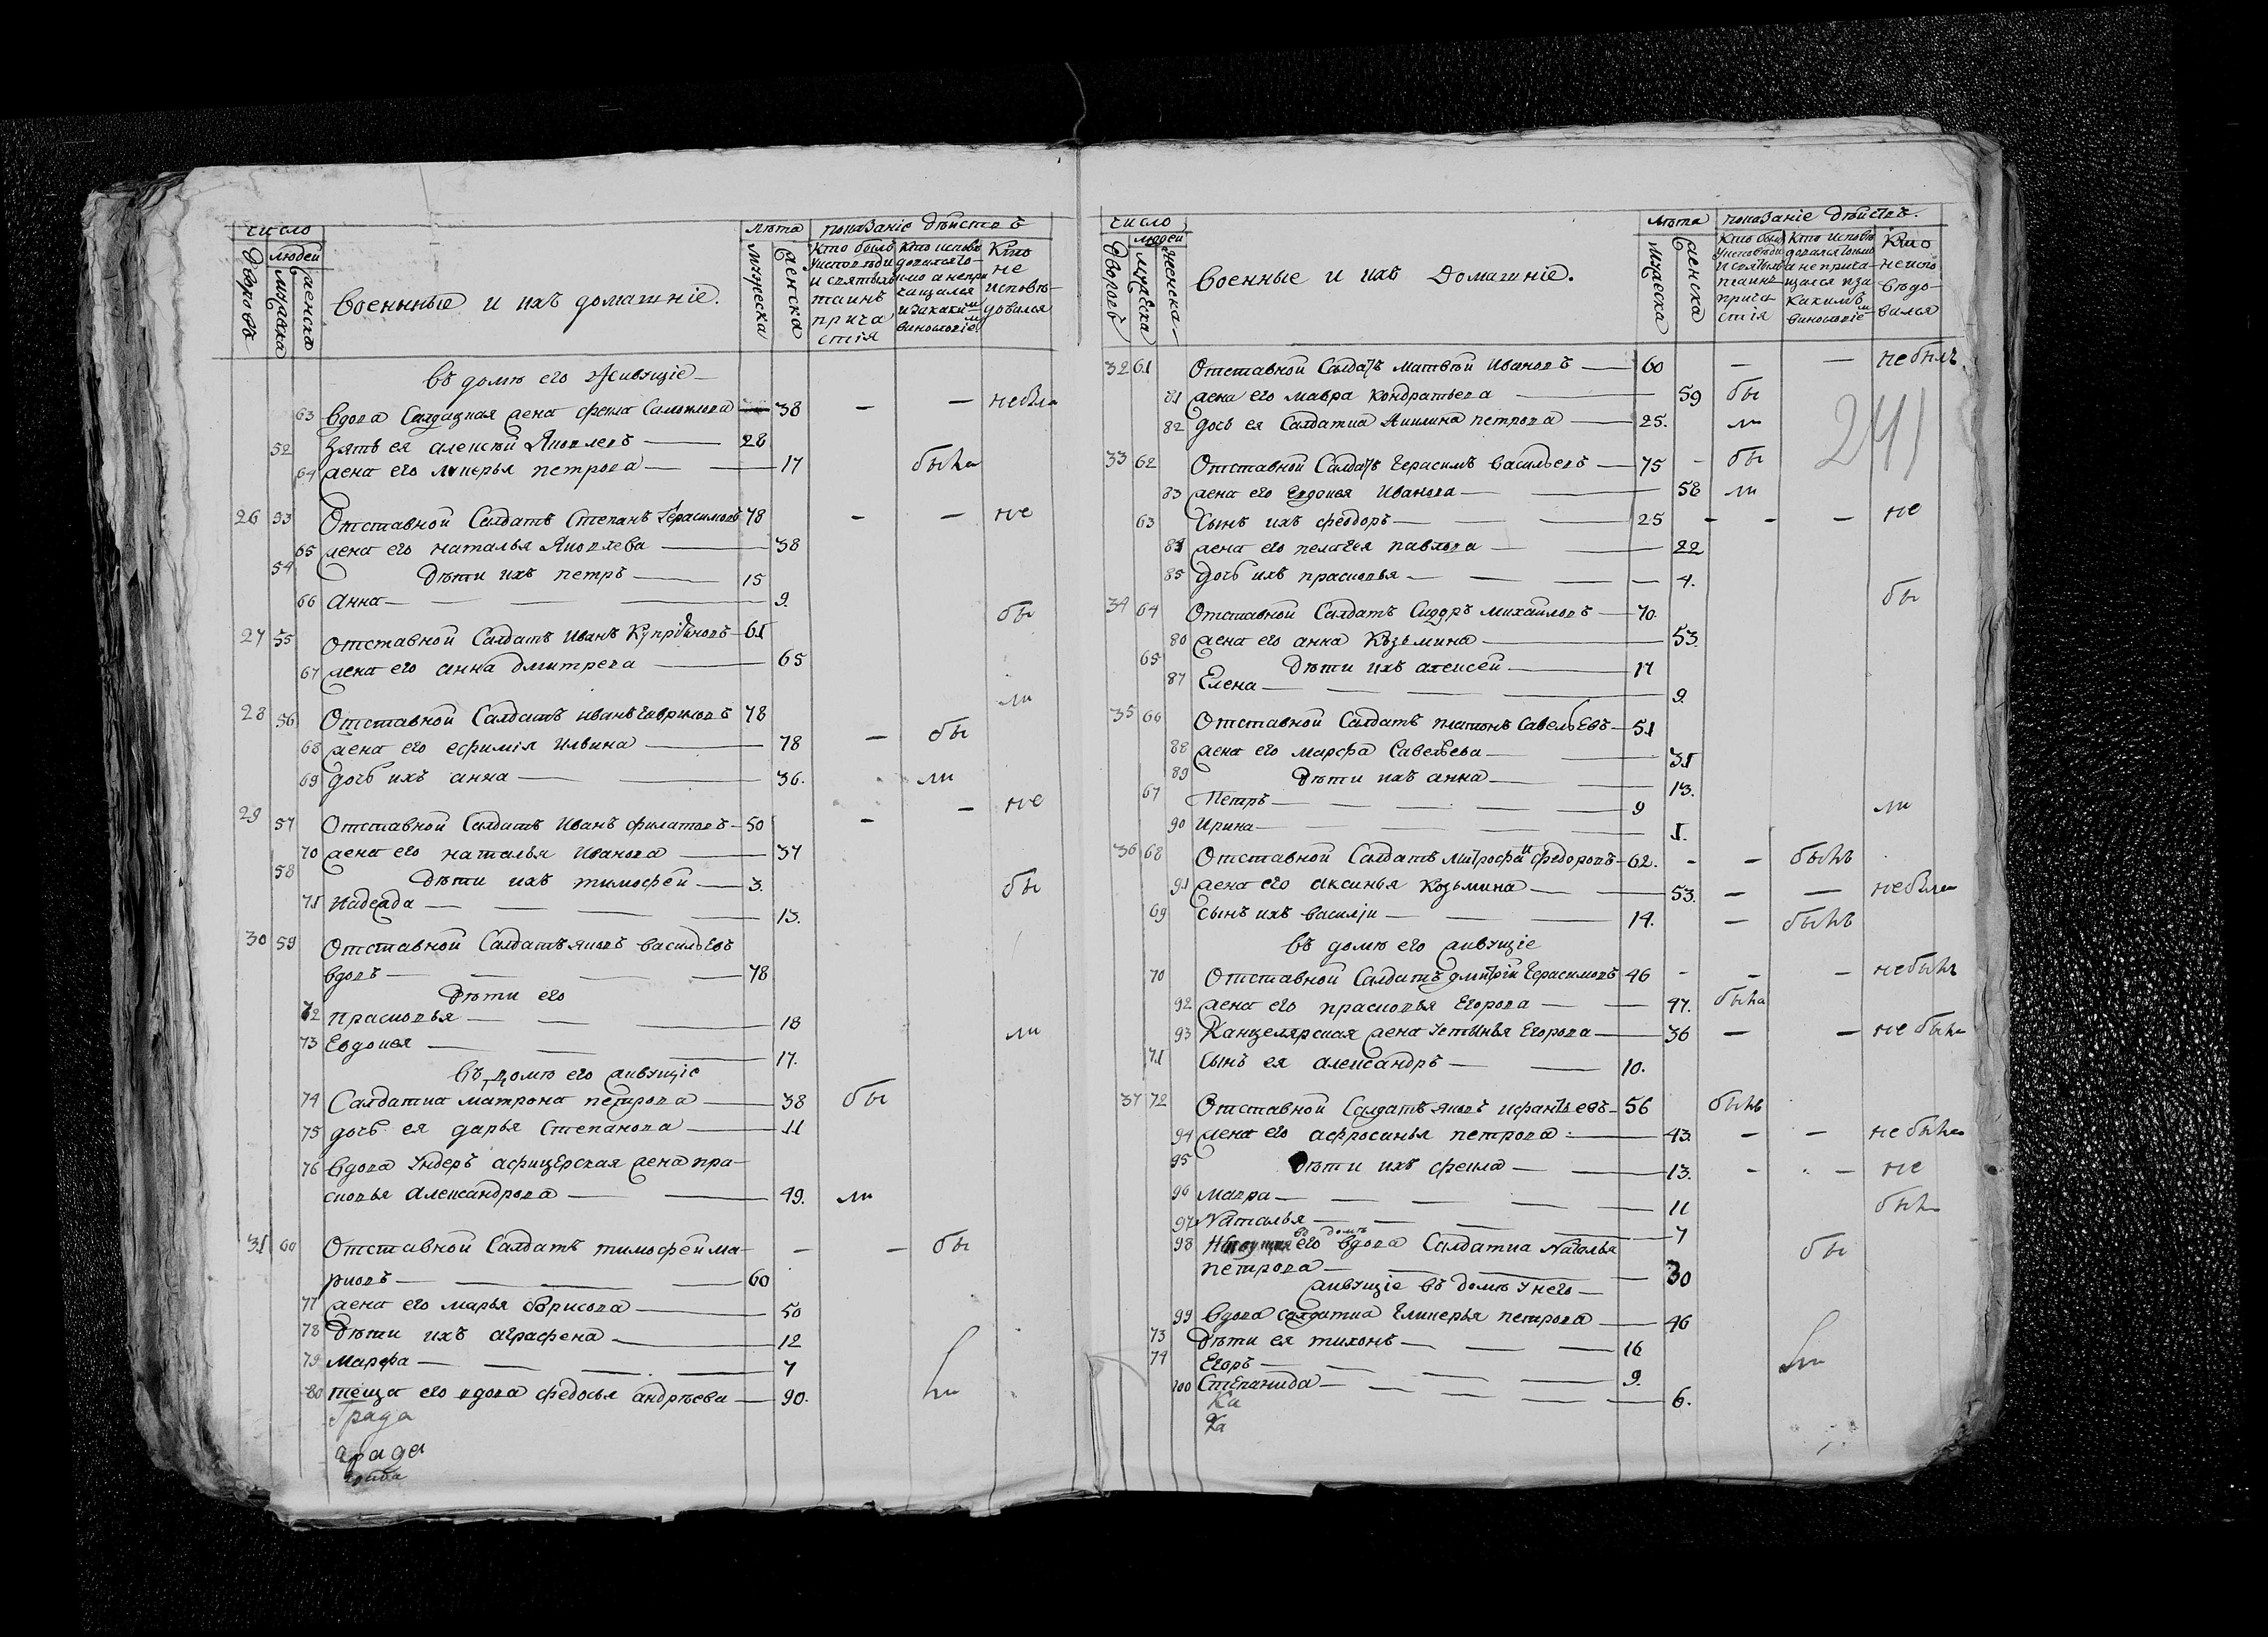 число
людей
дворовъ
мужеска
женска
Военные и ихъ домашніе.
лѣта
мужеска
женска
показаніе дѣйствъ
Кто былъ
у исповѣди
и святыхъ
таинъ
прича
стія
Кто исповѣ
довался то
кмо а непри
чащался
и за какимъ
винословіемъ
Кто
не
исповѣ-
довался
въ домѣ его живущіе —
63 вдова Салдацкая жена Фекла 38 — — небыла
52 Зять ея алексѣй Яковлевъ — 28
64 жена его лукерья петрова — 17 была
26 53 Отставной Салдатъ Степанъ Герасимовъ 78 — — не
65 жена его наталья Яковлева — 38
54 дѣти ихъ петръ — 15
66 Анна — 9.
бы
27 55 Отставной Салдатъ Иванъ Купріяновъ — 61
67 жена его анна дмитрева — 65
ли
28 56 Отставной Салдатъ иванъ гавриловъ 78
68 жена его ефимія Ильина — 78 — бы
69 дочь ихъ анна — 36. ли
29 57 Отставной Салдатъ Иванъ филатовъ — 50 — — не
70 жена его наталья Иванова — 37
58 дѣти ихъ тимофей — 3. бы
71 Надежда — 13.
30 59 Отставной Салдатъ яковъ васильевъ
вдовъ — 78
дѣти его
72 прасковья — 18
73 Евдокея — 17. ли
въ домѣ его живущіе
74 Салдатка матрона петрова — 38 бы
75 дочь ея дарья Степанова — 11
76 вдова Ундеръ афицерская жена пра-
сковья Александрова — 49. ли
31 60 Отставной Салдатъ тимофей ма- — — бы
рковъ — 60
77 жена его марья борисова — 50
78 дѣти ихъ аграфена — 12
79 Марфа — 7
80 теща его вдова федосья андрѣева — 90. ли
града
града
число
людей
дворовъ
мужеска
женска
Военные и ихъ Домашніе.
лѣта
мужеска
женска
показаніе дѣйствъ.
Кто былъ
у исповѣди
и святыхъ
таинъ
прича
стія
Кто исповѣ
довался токмо
а неприча-
щался и за
какимъ
винословіемъ
Кто
неиспо
вѣдо-
вался
32 61 Отставной Салдатъ матвѣй Ивановъ — 60 — — небылъ
81 жена его мавра кондратьева — 59 бы
241
82 дочь ея Салдатка Акилина петрова — 25. ли
33 62 Отставной Салдатъ Герасимъ васильевъ — 75 - бы
83 жена его Евдокея Иванова — 58 ли
63 Сынъ ихъ феодоръ — 25 - - — не
84 жена его пелагея павлова — 22
85 дочь ихъ прасковья — 4.
бы
34 64 Отставной Салдатъ Сидоръ михайловъ — 70.
80 жена его анна Кузьмина — 53.
65 дѣти ихъ алексей — 17
87 Елена — 9.
35 66 Отставной Салдатъ платонъ Савельевъ — 51
88 жена его марфа Савельева — 31
89 дѣти ихъ анна — 13.
67 Петръ — 9 ли
90 Ирина — 1.
36 68 Отставной Салдатъ митрофанъ федоровъ — 62. - - былъ
91 жена его аксинья козьмина — 53. — — небыла
69 сынъ ихъ василіи — 14. — былъ
въ домѣ его живущіе
70 Отставной Салдатъ дмитрій Герасимовъ 46 - - — небылъ
92 жена его прасковья Егорова — 47. была
93 Канцелярская жена Устинья Егорова — 36 — — не была
71 Сынъ ея александръ — 10.
37 72 Отставной Салдатъ яковъ ифантьевъ — 56 былъ
94 жена его афросинья петрова — 43. — — не была
95 дѣти ихъ фекла — 13. - - — не
96 Мавра — 11 были
97 Наталья — 7
въ домѣ
98 его вдова Салдатка Наталья бы
петрова — 30
живущіе въ домѣ у него —
99 вдова салдатка Гликерья петрова — 46
73 дѣти ея тихонъ — 16
74 Егоръ — 9. ли
100 Степанида — 6.
Ка
Ка